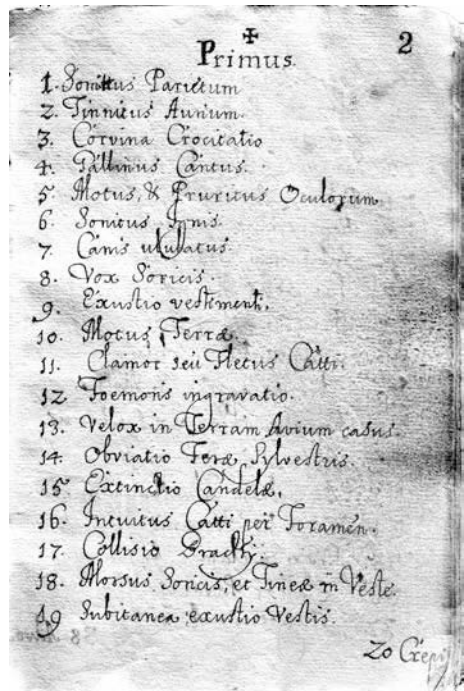 ✠ 2
Primus
1. Sonitus Parietum
2. Tinnitus Aurium.
3. Corvina Crocitatio
4. Gallinus Cantus.
5. Motus, & Pruritus Oculorum
6. Sonitus Ignis.
7. Canis ululatus.
8. Vox Soricis.
9. Exustio vestimenti.
10. Motus Terræ.
11. Clamor seu Fletus Catti.
12. Foemoris ingravatio.
13. Velox in Terram Avium casus.
14. Obviatio Feræ Sylvestris.
15. Extinctio Candelæ.
16. Intuitus Catti per Foramen.
17. Collisio Brachij.
18. Morsus Soricis, et Tineæ in Veste
19 Subitanea exustio Vestis.
20 Crepi